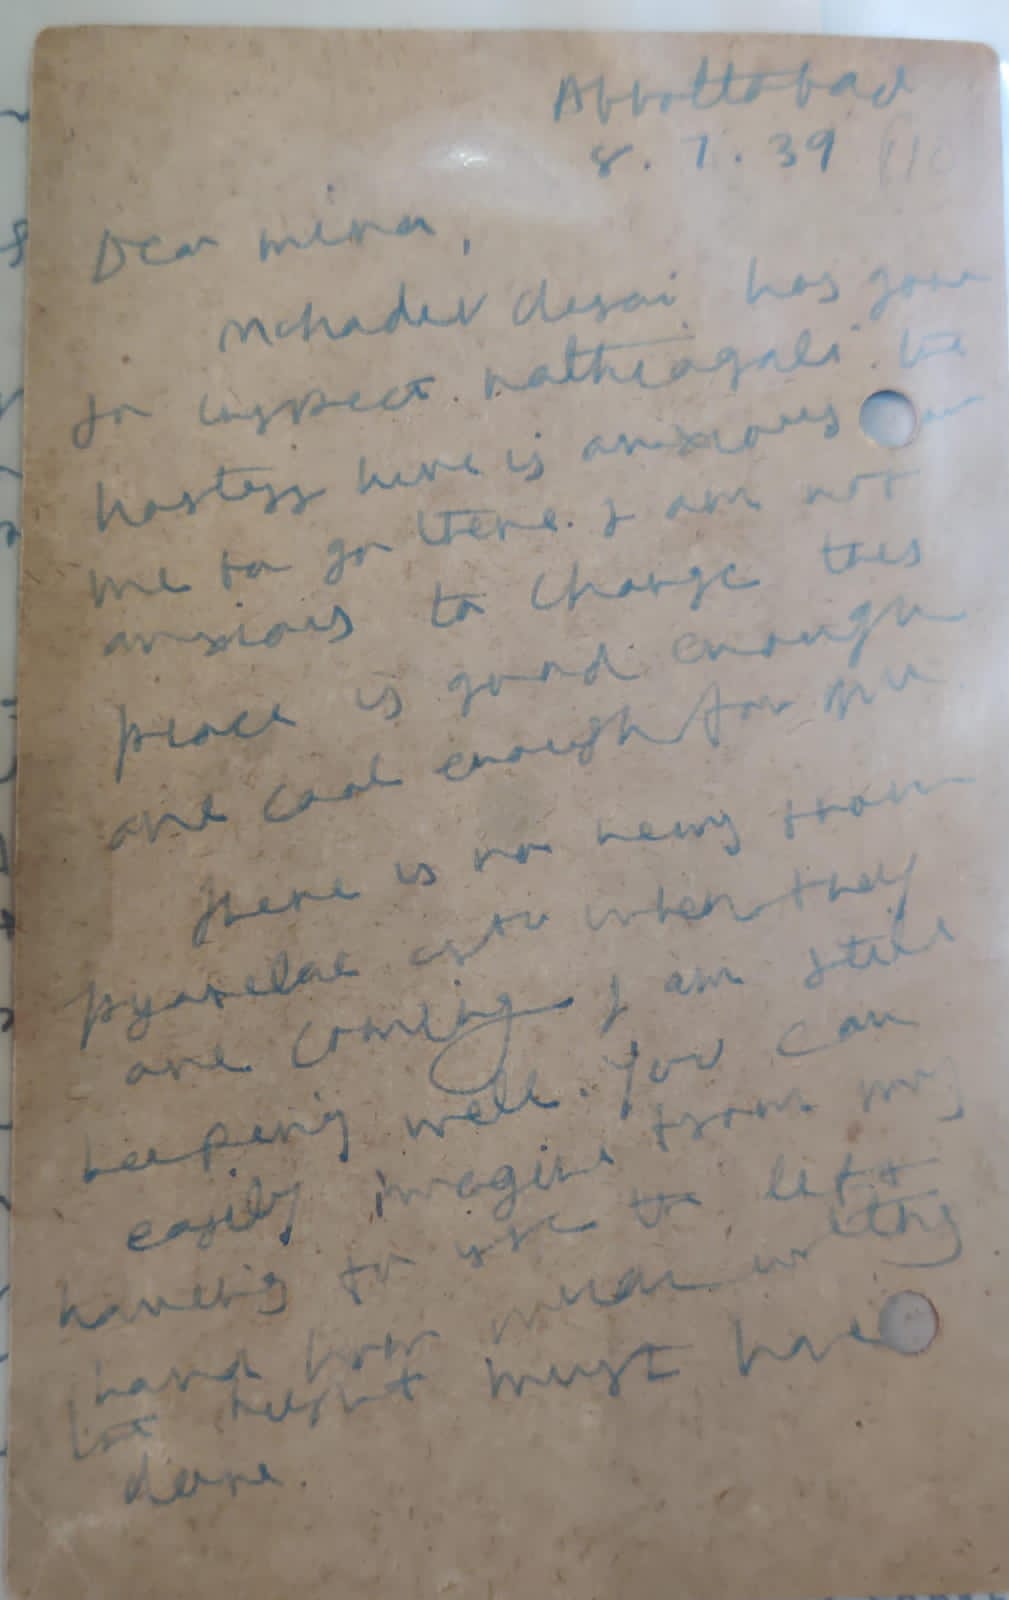 Abbottabad
8.7.39
Dear Mira,
Mahadev Desai has gone
to inspect Nathiagali. The
hostess here is anxious for
me to go there. I am not
anxious to change. This
place is good enough
and cool enough for me.
There is no news from
Pyarelal as to when they
are coming. I am still
keeping well. You can
easily imagine from my
having to use the left
hand how much writing
the right must have
done.